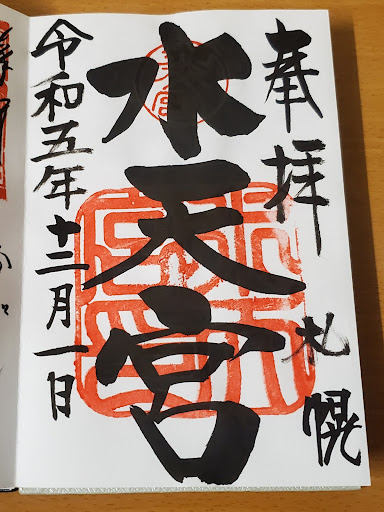 奉拝
札幌
水天宮
令和五年十二月一日